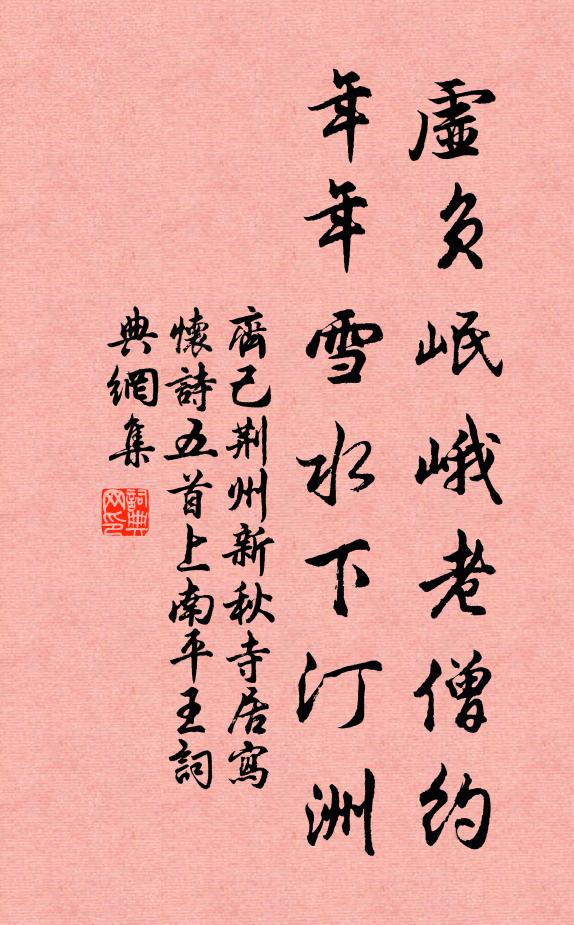 虛負岷峨老僧約
年年雪水下汀洲
齊己荆州新秋寺居寫
懷詩五首上南平王詞
典網集
詞典网印